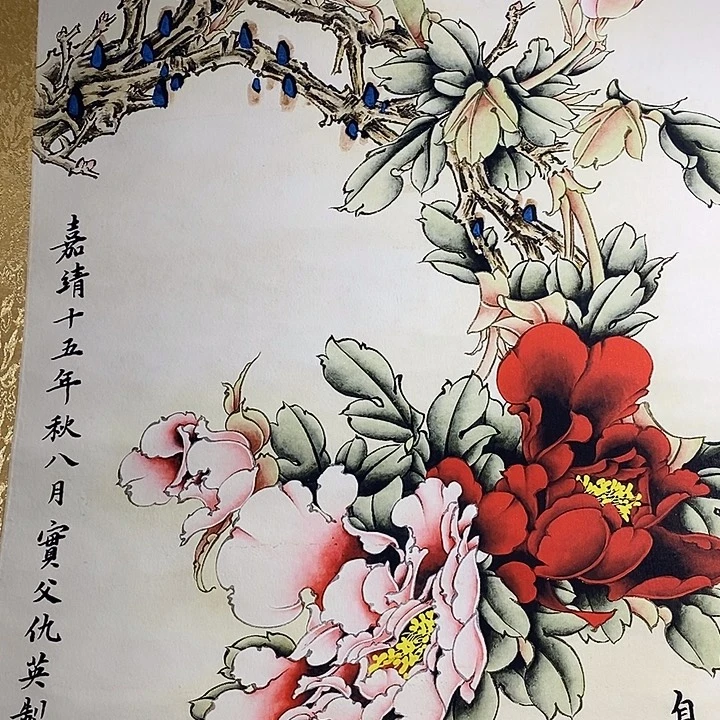 嘉靖十五年秋八月實父仇英製